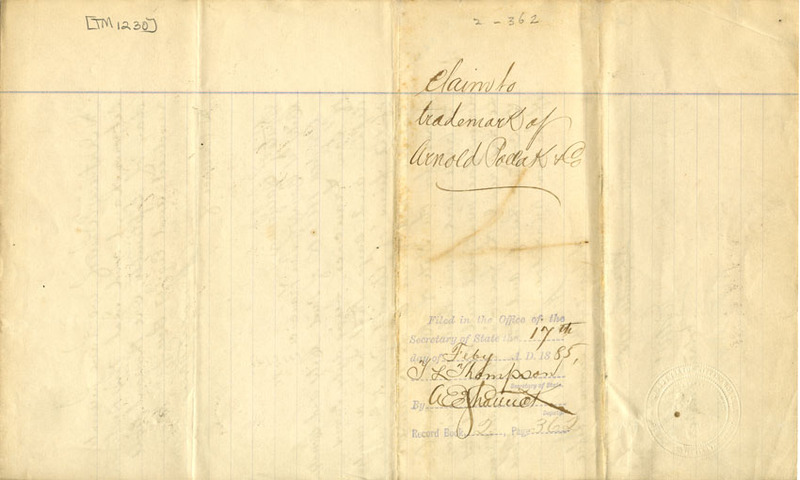 [TM 1230]
2 - 362
Claim to
trademark of
Arnold Pollak & Co
Filed in the Office of the
Secretary of State the 17th
day of Feby A. D. 1885,
T L Thompson
Secretary of State
By A E
Deputy
Record Book 2, Page 362